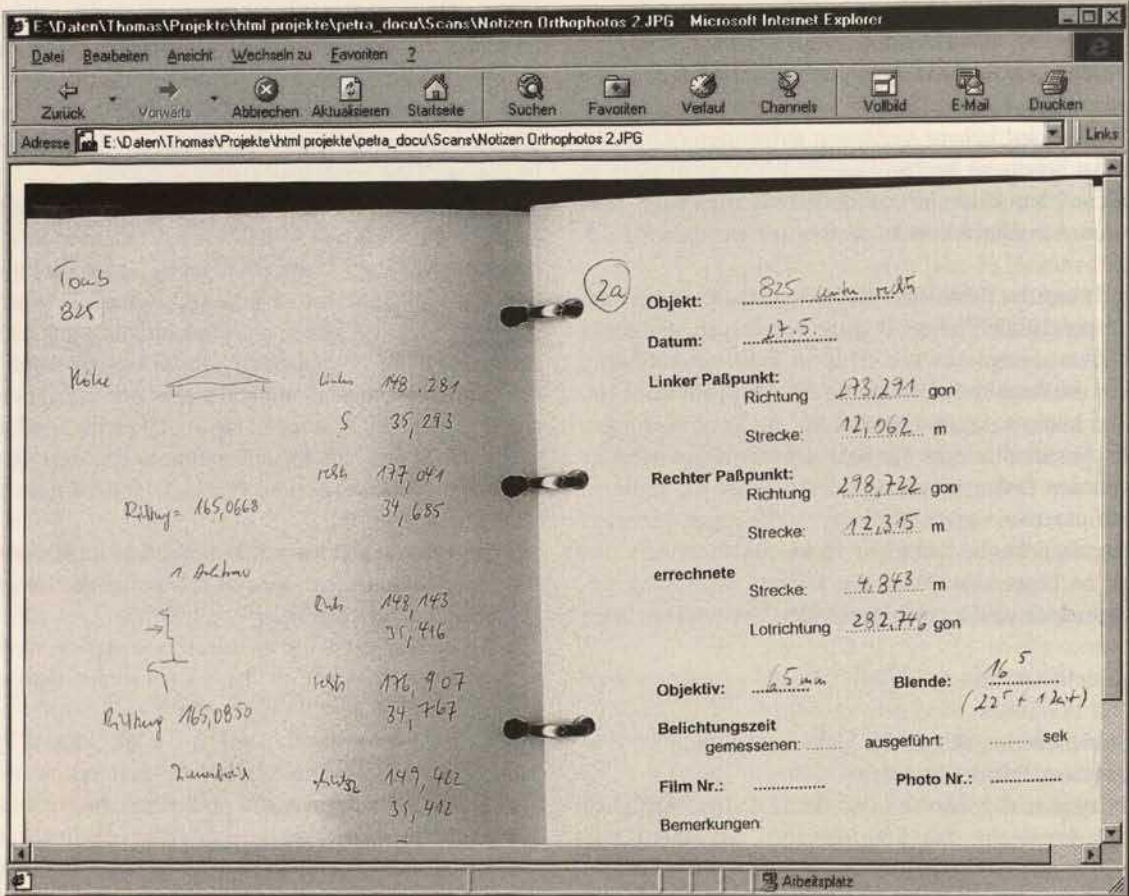 E:\Daten\Thomas\Projekte\html projekte\petra_docu\Scans\Notizen Orthophotos 2.JPG - Microsoft Internet Explorer
Datei Bearbeiten Ansicht Wechseln zu Favoriten ?
Zurück Vorwärts Abbrechen Aktualisieren Startseite Suchen Favoriten Verlauf Channels Vollbild E-Mail Drucken
Adresse E:\Daten\Thomas\Projekte\html projekte\petra_docu\Scans\Notizen Orthophotos 2.JPG Links
Tomb
825
Höhe Links 148.281
S 35,293
rechts 177,041
Richtung = 165,0668 34,685
1.
148,143
35,416
rechts 176,907
Richtung 165,0850 34,767
149,422
35,412
2a
Objekt: 825 unten rechts
Datum: 27.5.
Linker Paßpunkt:
Richtung 273,291 gon
Strecke: 12,062 m
Rechter Paßpunkt:
Richtung 298,722 gon
Strecke: 12,315 m
errechnete
Strecke: 4,843 m
Lotrichtung 282,746 gon
Objektiv: 65 mm Blende: 16 5
Belichtungszeit
gemessenen: ausgeführt: sek
Film Nr.: Photo Nr.:
Bemerkungen:
Arbeitsplatz